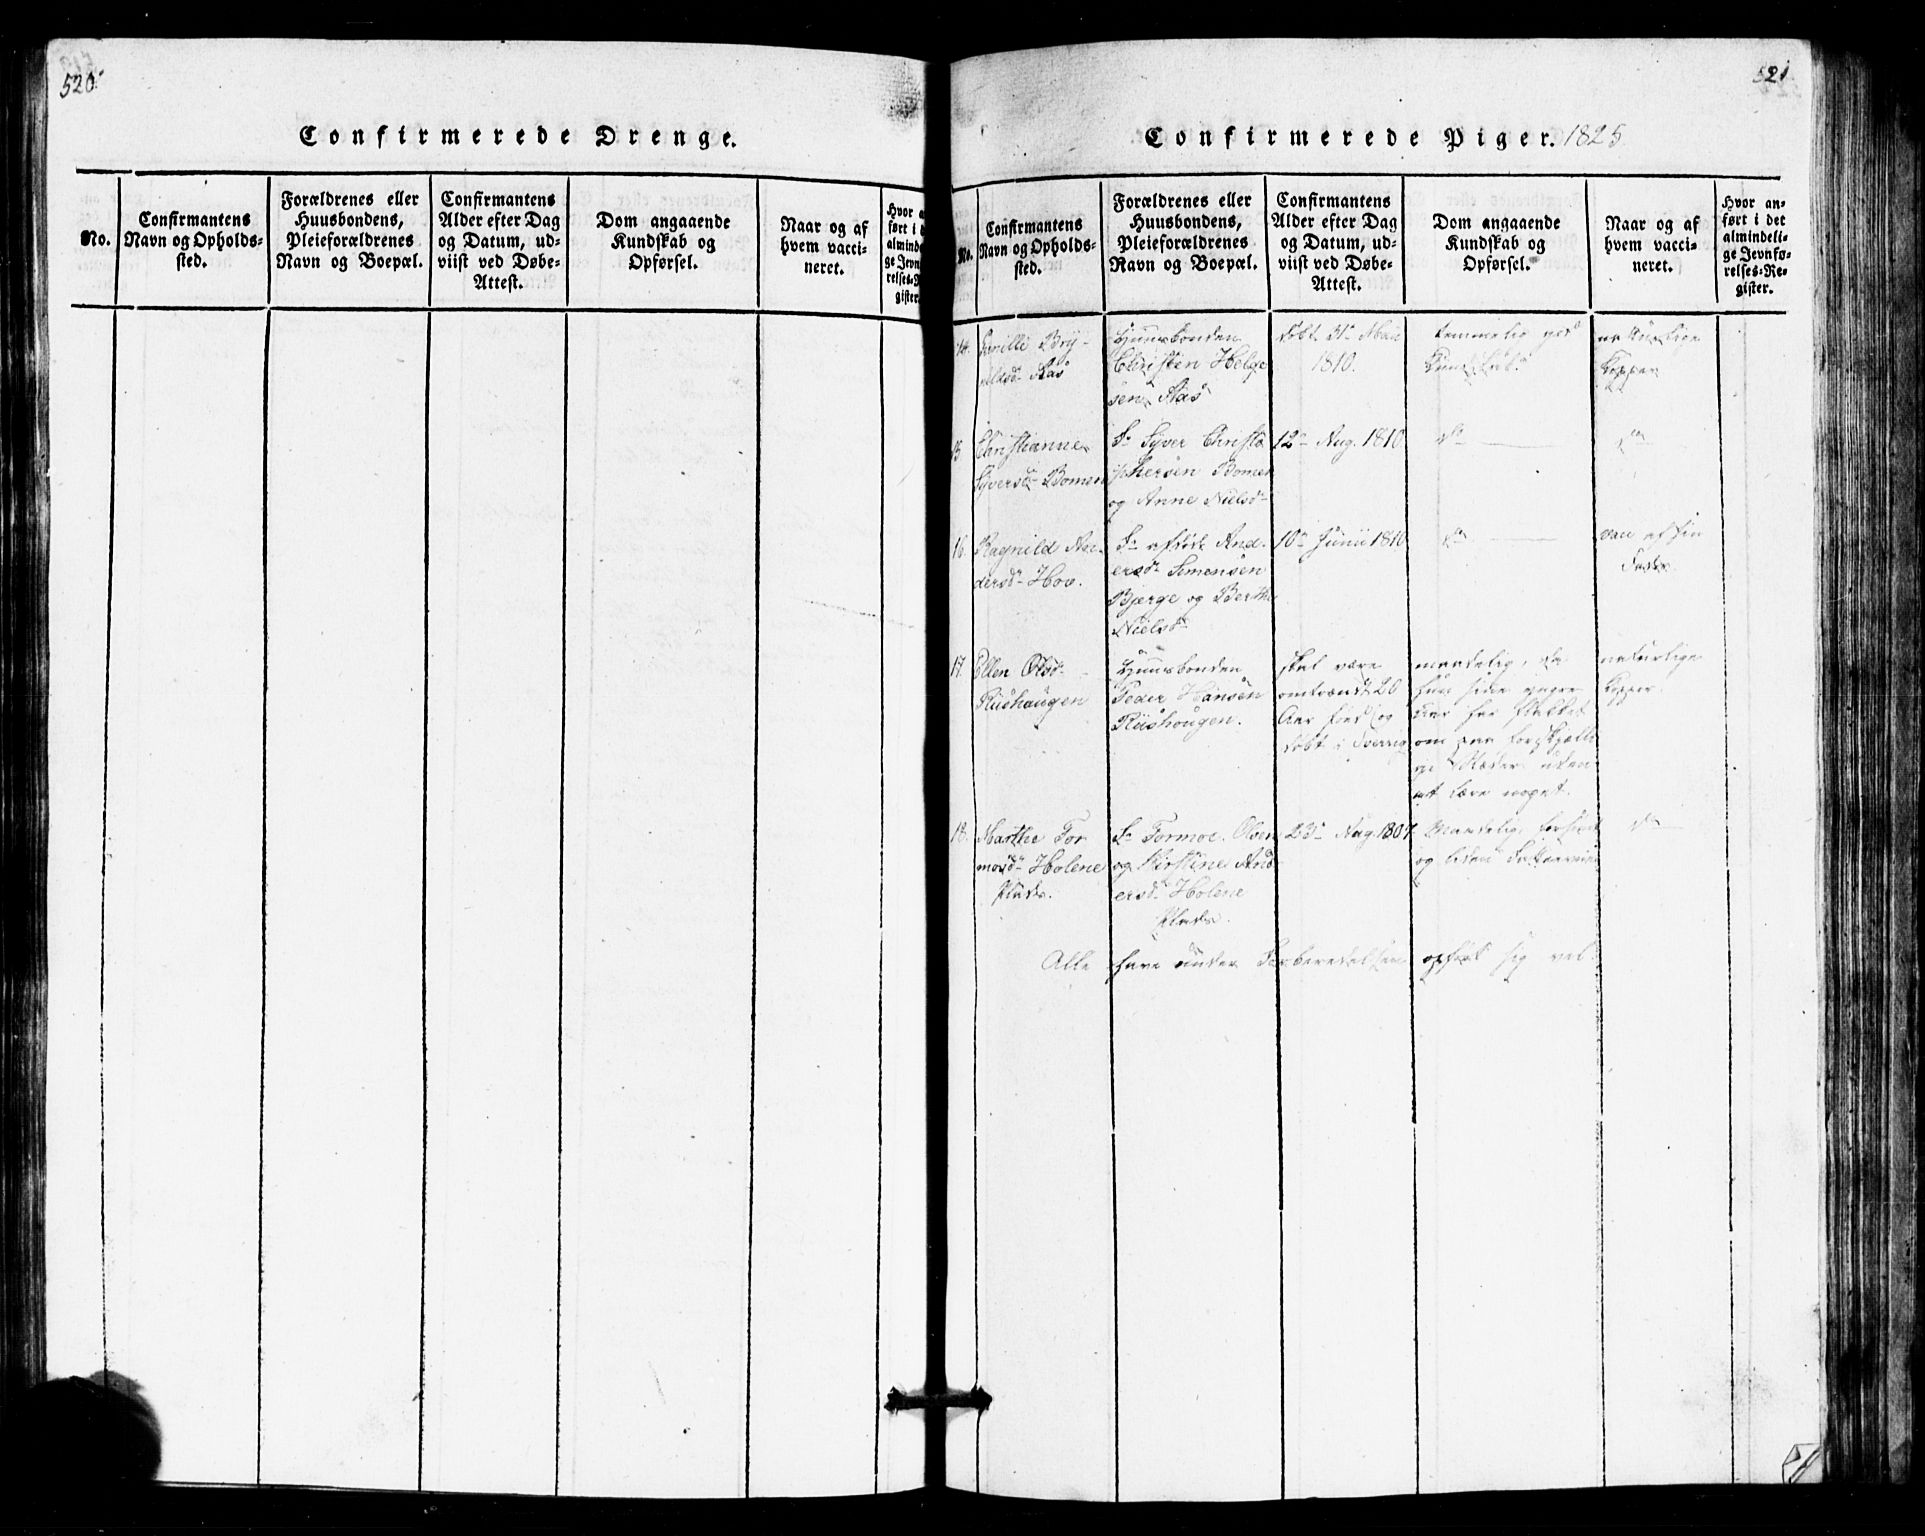 520
Confirmerede Drenge.
No.
Confirmantens
Navn og Opholds-
sted.
Forældrenes eller
Huusbondens,
Pleieforældrenes
Navn og Boepæl.
Confirmantens
Alder efter Dag
og Datum, ud-
viist ved Døbe-
Attest.
Dom angaaende
Kundskab og
Opførsel.
Naar og af
hvem vacci-
neret.
Hvor
ført i
almind
ge Jevn
relses-R
gister.
521
Confirmerede Piger. 1825
No.
Confirmantens
Navn og Opholds-
sted.
Forældrenes eller
Huusbondens,
Pleieforældrenes
Navn og Boepæl.
Confirmantens
Alder efter Dag
og Datum, ud-
viist ved Døbe-
Attest.
Dom angaaende
Kundskab og
Opførsel.
Naar og af
hvem vacci-
neret.
Hvor an-
ført i det
almindeli-
ge Jevnfø-
relses-Re-
gister.
14.
Huusbonden
Christen Helge
sen
døbt 31 Maii
1810.
temmelig god
Kundskab.
naturlige
Kopper
Christianne
Syversd Bomen
Syver Christo
phersen Bomen
og Anne Nielsd
12 Aug. 1810
do
do
16.
Ragnild An-
dersd Hov.
And-
Simensen
Bjerge og Berthe
Nielsd
10 Junii 1810
do
vac af sin
Fader
17.
Ellen Olsd
Riishaugen
Huusbonden
Peder Hansen
Riishougen.
skal være
omtrendt 20
Aar født og
døbt i Sverrig
maadelig, da
hun sine yngre
Aar har flakket
om paa forskjelli
ge Stæder uden
at lære noget.
naturlige
Kopper.
18.
Marthe Tor
mosd Holene
Plads.
Tormoe Olsen
og Kirstine And
ersd Holene
Plads.
23 Aug. 1807
Maadelig
og liden
do
Alle have under Forberedelsen opført sig vel.